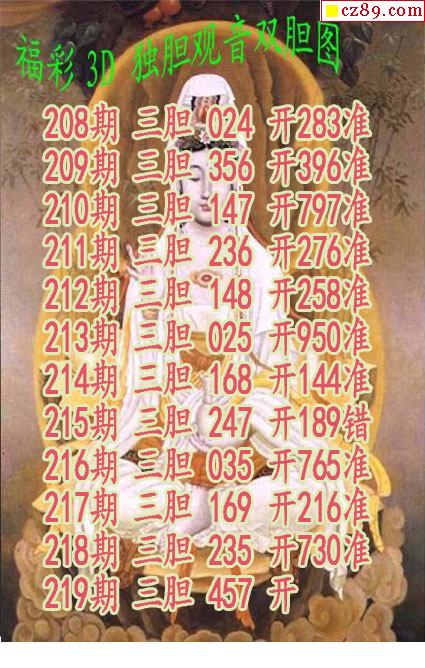 cz89.com
福彩 3D 独胆观音双胆图
208期 三胆 024 开283准
209期 三胆 356 开396准
210期 三胆 147 开797准
211期 三胆 236 开276准
212期 三胆 148 开258准
213期 三胆 025 开950准
214期 三胆 168 开144准
215期 三胆 247 开189错
216期 三胆 035 开765准
217期 三胆 169 开216准
218期 三胆 235 开730准
219期 三胆 457 开